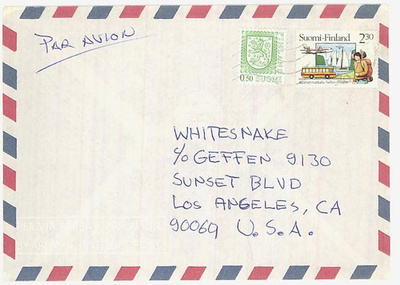 PAR AVION
0,50 SUOMI
Suomi-Finland 2,30
WHITESNAKE
c/o GEFFEN 9130
SUNSET BLVD
LOS ANGELES, CA
90069 U.S.A.